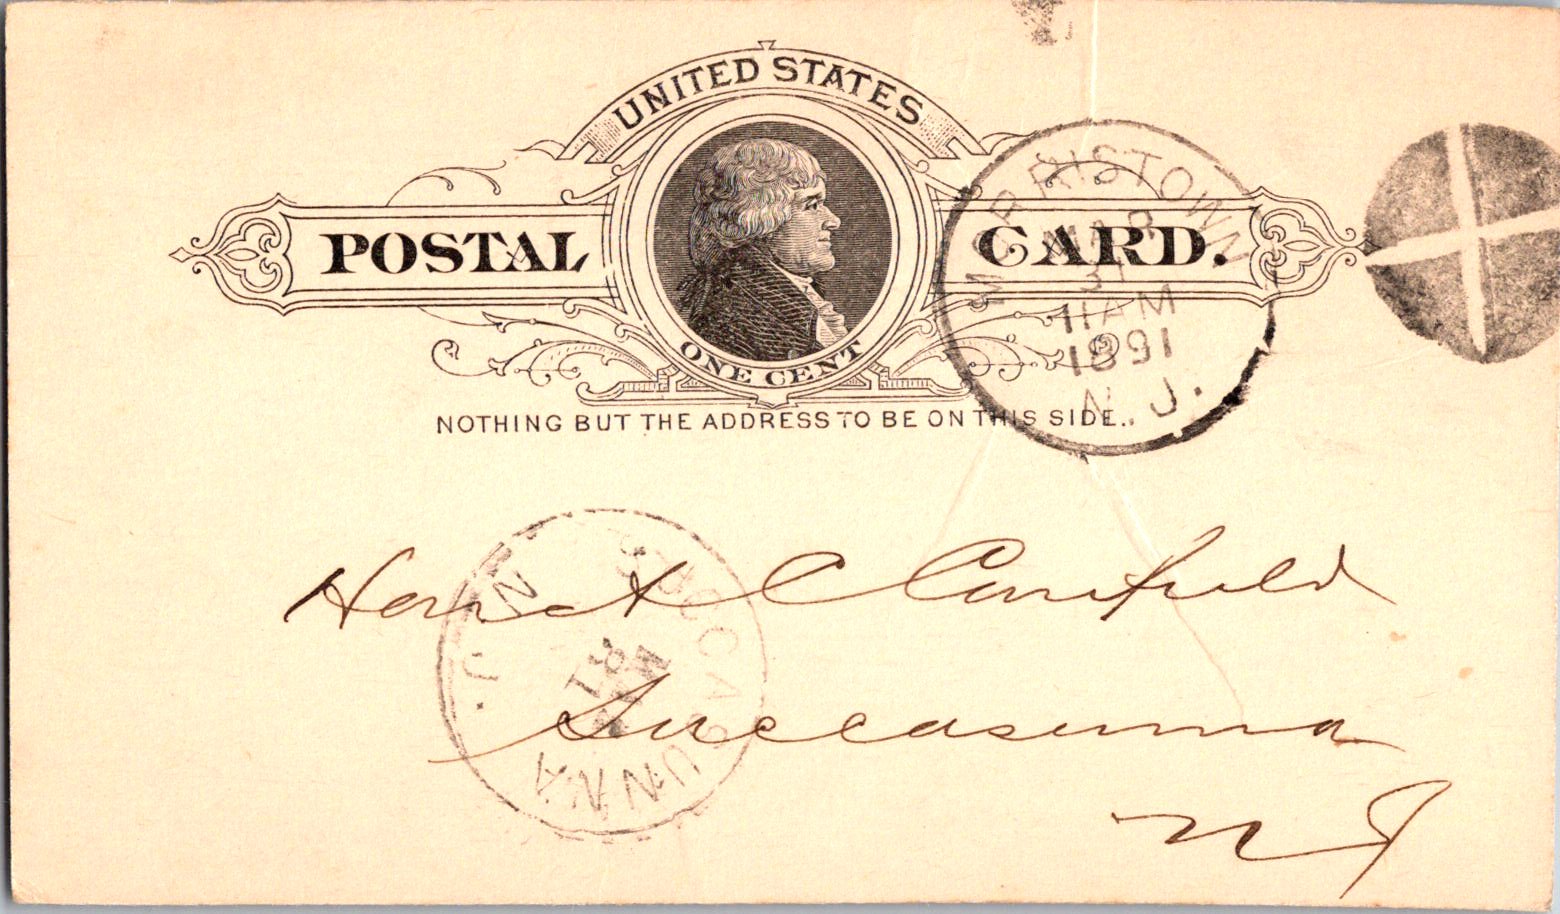 UNITED STATES
POSTAL CARD.
ONE CENT
NOTHING BUT THE ADDRESS TO BE ON THIS SIDE.
MORRISTOWN
MAR
31
11 AM
1891
N.J.
SUCCASUNNA
N.J.
MAR
31
Harriet C Canfield
Succasunna
NJ